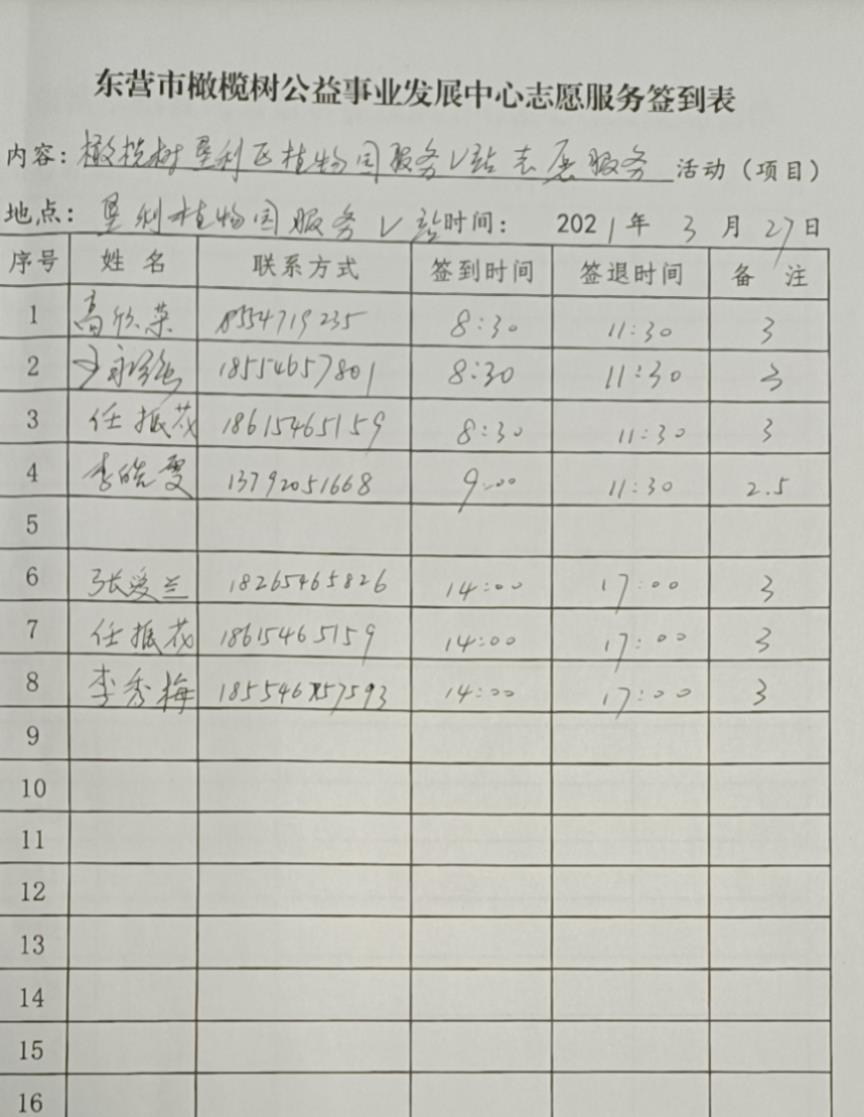 东营市橄榄树公益事业发展中心志愿服务签到表
内容：橄榄树垦利区植物园服务V站志愿服务 活动（项目）
地点：垦利植物园服务V站时间： 2021年 3月 27日
序号 姓名 联系方式 签到时间 签退时间 备 注
1 高欣荣 8554719235 8:30 11:30 3
2 18554657801 8:30 11:30 3
3 任振花 18615465159 8:30 11:30 3
4 李皓雯 13792051668 9:00 11:30 2.5
5
6 张爱兰 18265465826 14:00 17:00 3
7 任振花 18615465159 14:00 17:00 3
8 李秀梅 14:00 17:00 3
9
10
11
12
13
14
15
16